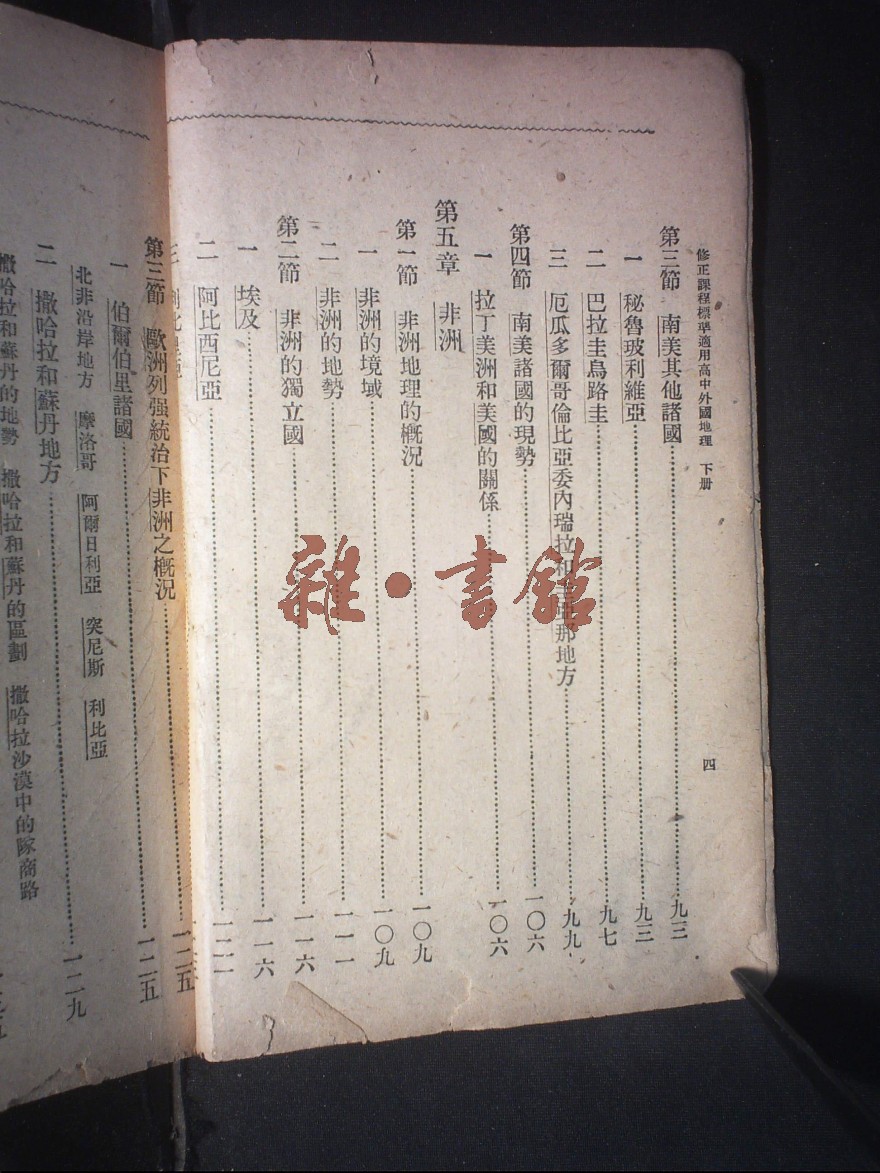 修正課程標準適用高中外國地理 下册
四
第三節 南美其他諸國……九三
一 秘魯玻利維亞……九三
二 巴拉圭烏路圭……九七
三 厄瓜多爾哥倫比亞委內瑞拉和 那地方……九九
第四節 南美諸國的現勢……一〇六
一 拉丁美洲和美國的關係……一〇六
第五章 非洲
第一節 非洲地理的概況……一〇九
一 非洲的境域……一〇九
二 非洲的地勢……一一一
第二節 非洲的獨立國……一一六
一 埃及……一一六
二 阿比西尼亞……
三
第三節 歐洲列强統治下非洲之概況……一二五
一 伯爾伯里諸國……一二五
北非沿岸地方 摩洛哥 阿爾日利亞 突尼斯 利比亞
二 撒哈拉和蘇丹地方……一二九
撒哈拉和蘇丹的地勢 撒哈拉和蘇丹的區劃 撒哈拉沙漠中的隊商路
雜·書館